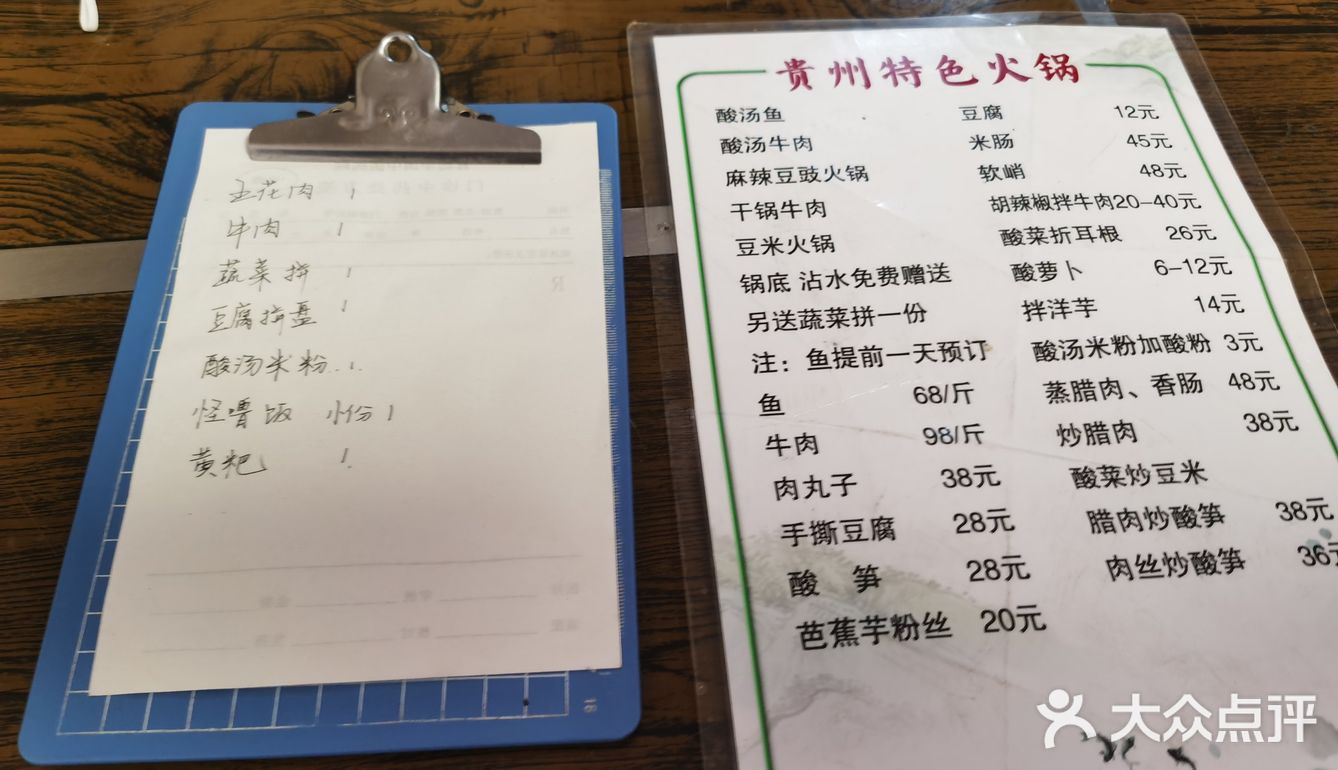 五花肉 1
牛肉 1
蔬菜拼 1
豆腐拼盘 1
酸汤米粉 1
怪噜饭 小份 1
黄粑 1
18
贵州特色火锅
酸汤鱼
酸汤牛肉
麻辣豆豉火锅
干锅牛肉
豆米火锅
锅底 沾水免费赠送
另送蔬菜拼一份
注：鱼提前一天预订
鱼 68/斤
牛肉 98/斤
肉丸子 38元
手撕豆腐 28元
酸 笋 28元
芭蕉芋粉丝 20元
豆腐 12元
米肠 45元
软哨 48元
胡辣椒拌牛肉20-40元
酸菜折耳根 26元
酸萝卜 6-12元
拌洋芋 14元
酸汤米粉加酸粉 3元
蒸腊肉、香肠 48元
炒腊肉 38元
酸菜炒豆米
腊肉炒酸笋 38元
肉丝炒酸笋 36元
大众点评